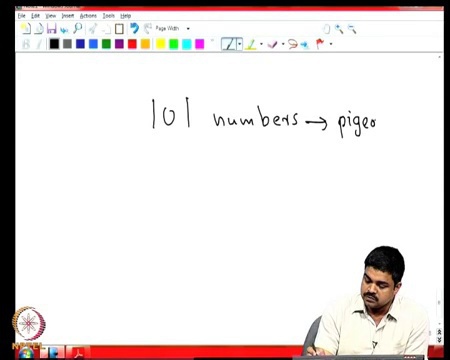 File Edit View Insert Actions Tools Help
Page Width
101 numbers → pigeo